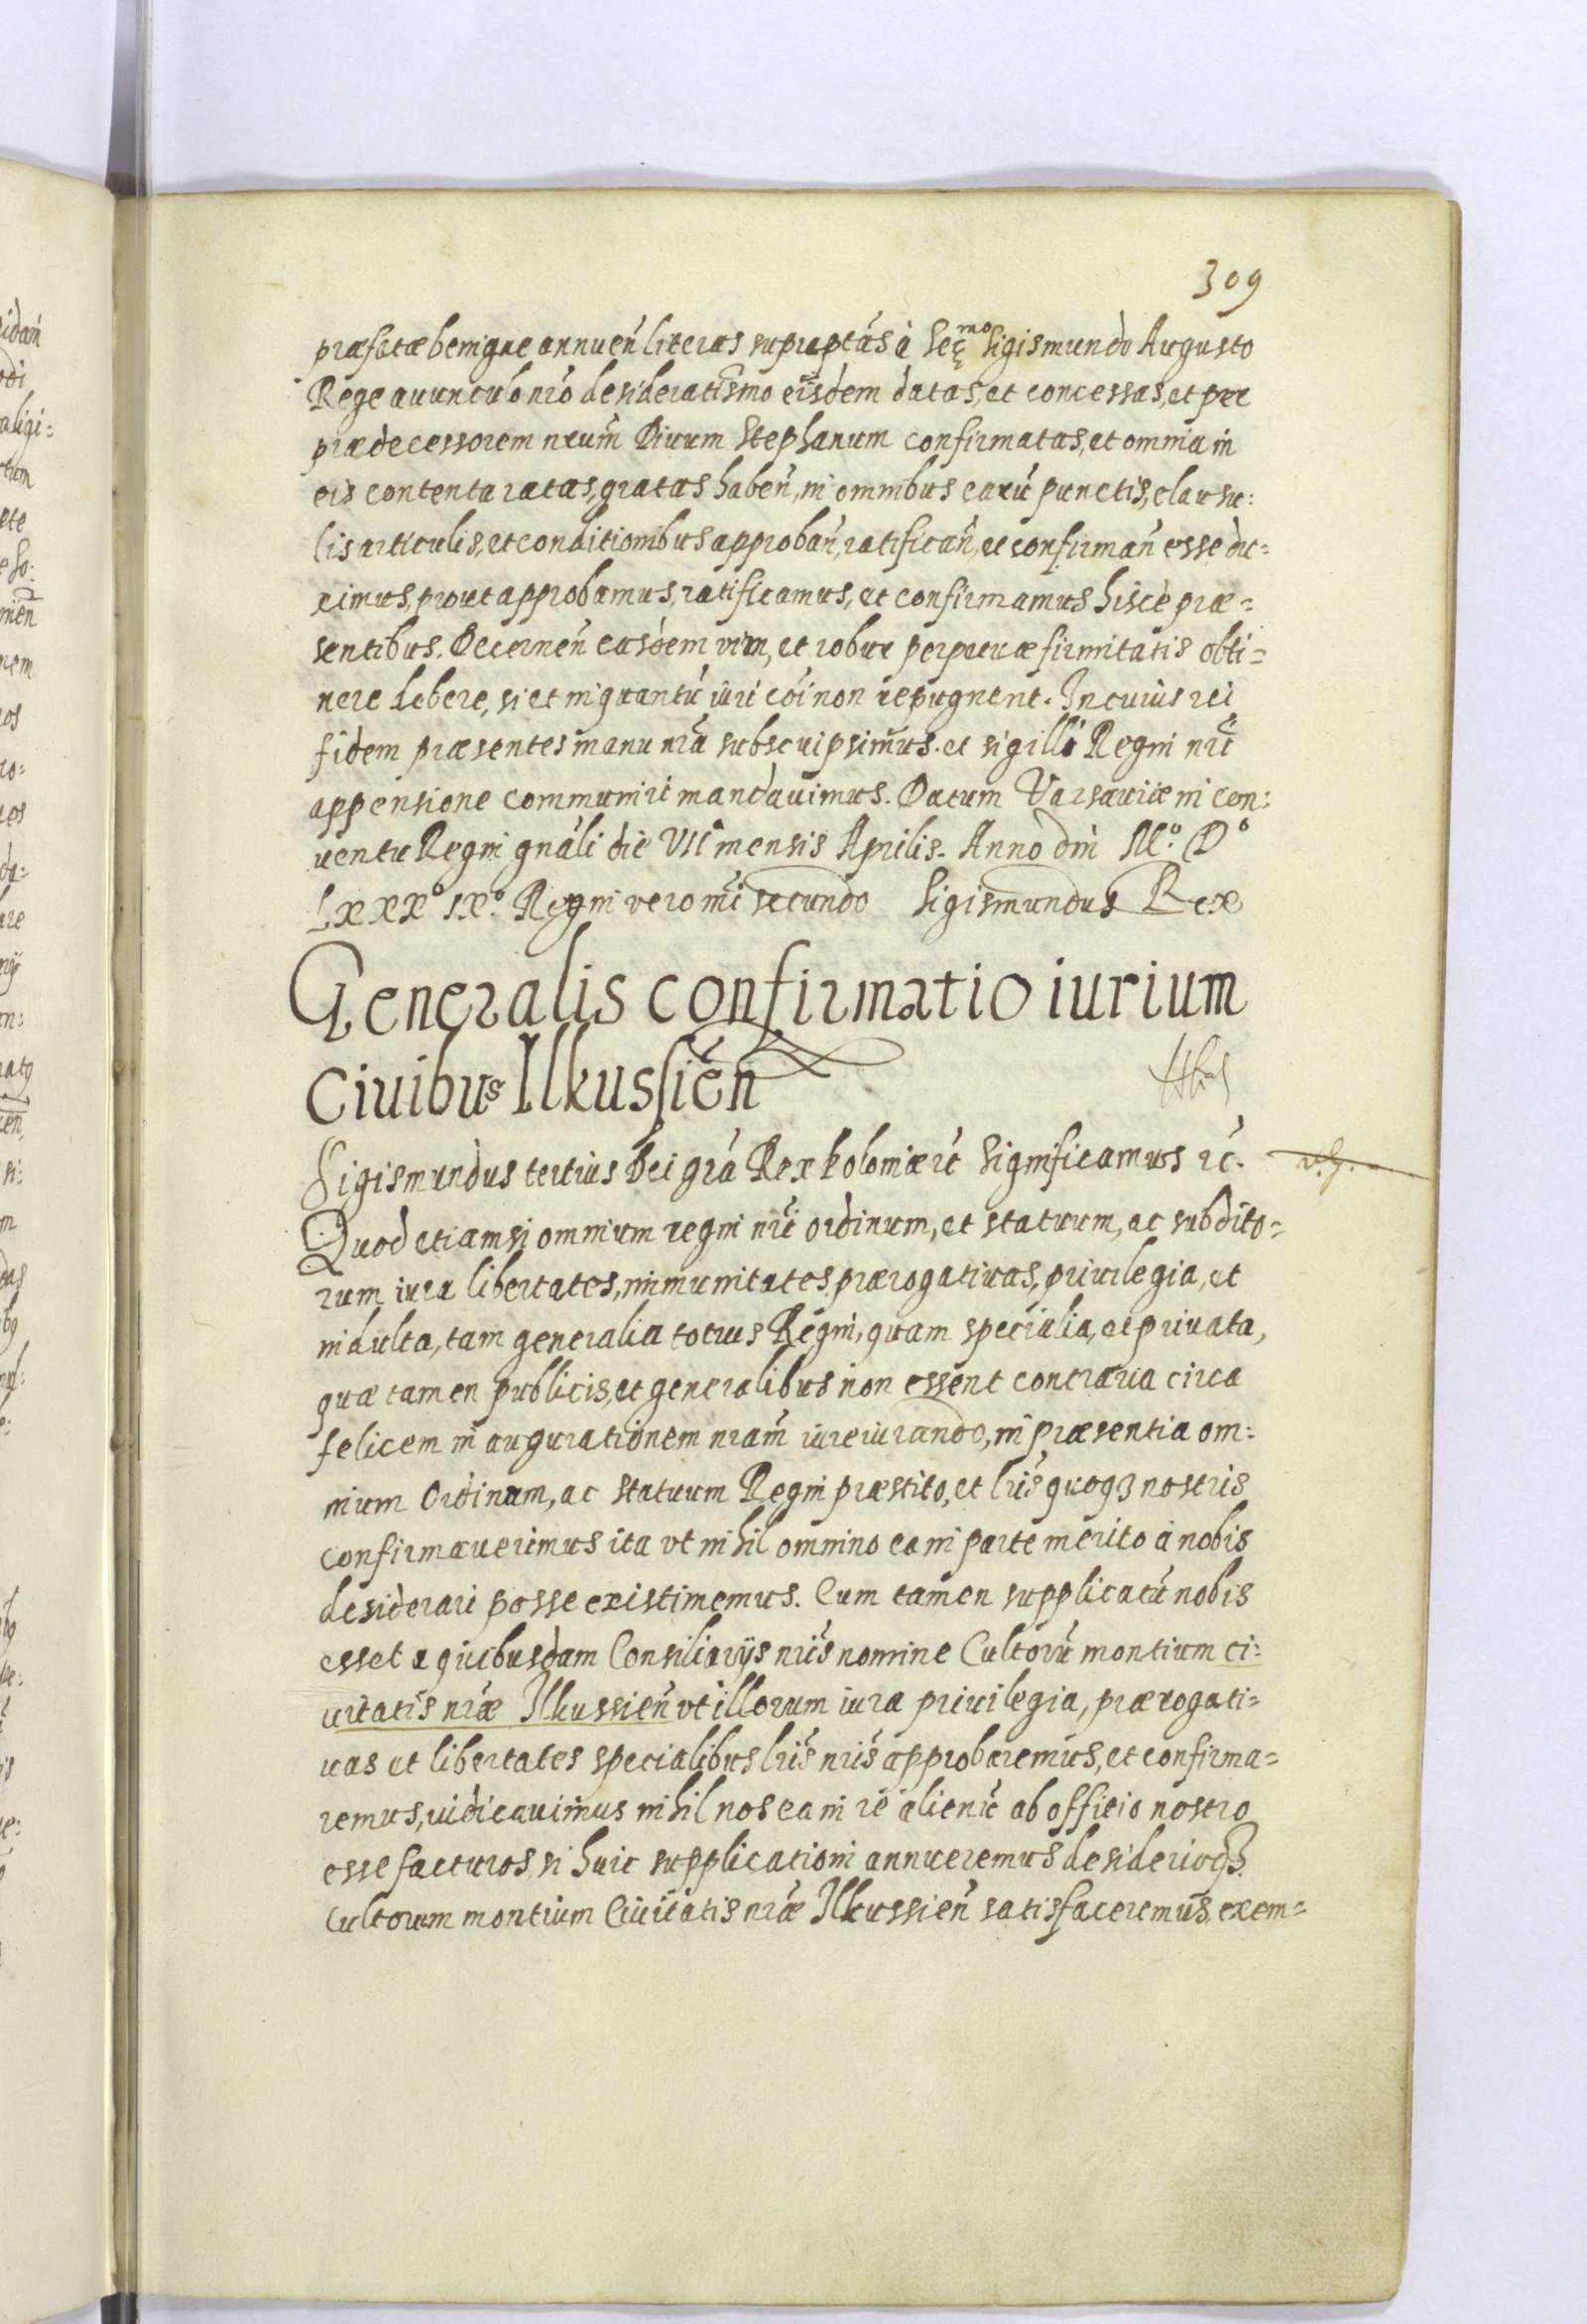 309
præfatæ benigne annuen̄ literas suprap̄tas à Ser^mo Sigismundo Augusto
Rege auunculo nr̄o desideratis̄mo eisdem datas, et concessas, et per
prædecessorem nrum̄ Diuum Stephanum confirmatas, et omnia in
eis contenta ratas, gratas haben̄, in omnibus earū punctis, clausu:
lis articulis, et conditionibus approban̄, ratifican̄, et confirman̄ esse du=
ximus, prout approbamus, ratificamus, et confirmamus hisce præ=
sentibus. Decernen̄ easdem vim, et robur perpetuæ firmitatis obti=
nere debere, si et in quantū iuri cōi non repugnent. In cuius rei
fidem præsentes manu nr̄a subscripsimus. et sigilli Regni nr̄i
appensione communiri mandauimus. Datum Varsauiæ in con:
uentu Regni gnāli die VII mensis Aprilis. Anno dn̄i M.º Dº
Lxxxº IXº. Regni vero nr̄i secundo Sigismundus Rex
Generalis confirmatio iurium
Ciuibus Ilkussien̄
Sigismundus tertius Dei gr̄a Rex Poloniæ rc̄ Significamus rc̄.
Quod etiamsi omnium regni nr̄i ordinum, et statuum, ac subdito=
rum iura libertates, immunitates, prærogatiuas, priuilegia, et
indulta, tam generalia totius Regni, quam specialia, et priuata,
quæ tamen publicis, et generalibus non essent contraria circa
felicem in augurationem nram̄ iureiurando, in præsentia om:
nium Ordinum, ac statuum Regni præstito, et lr̄is quoqꝫ nostris
confirmauerimus ita vt nihil omnino ea in parte merito à nobis
desiderari posse existimemus. Cum tamen supplicatū nobis
esset a quibusdam Consiliarijs nr̄is nomine Cultorū montium ci:
uitatis nr̄æ Ilkussien̄ vt illorum iura priuilegia, prærogati=
uas et libertates specialibus lr̄is nr̄is approbaremus, et confirma=
remus, iudicauimus nihil nos ea in re alienū ab officio nostro
esse facturos, si huic supplicationi annueremus desiderioqꝫ
Cultorum montium Ciuitatis nr̄æ Ilkussien̄ satisfaceremus, exem=